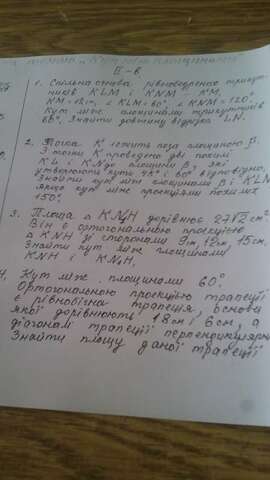 II - в
1. Спільна основа рівнобедрених трикут-
ників KLM і KNM - KM,
KM = 12 см, ∠ KLM = 60°, ∠ KNM = 120°.
Кут між площинами трикутників
60°. Знайти довжину відрізка LN.
2. Точка K лежить поза площиною β.
З точки K проведено дві похилі
KL і K до площини β, які
утворюють кути 45° і 60° відповідно.
Знайти кут між площинами β і KLN,
якщо кут між проекціями похилих
150°.
3. Площа Δ KN₁H дорівнює 27√2 см²
Він є ортогональною проекцією
Δ KNH зі сторонами 9 см, 12 см, 15 см.
Знайти кут між площинами
KNH і KN₁H.
4. Кут між площинами 60°.
Ортогональною проекцією трапеції
є рівнобічна трапеція, основи
якої дорівнюють 18 см і 6 см, а
діагоналі трапеції перпендикулярні
Знайти площу даної трапеції